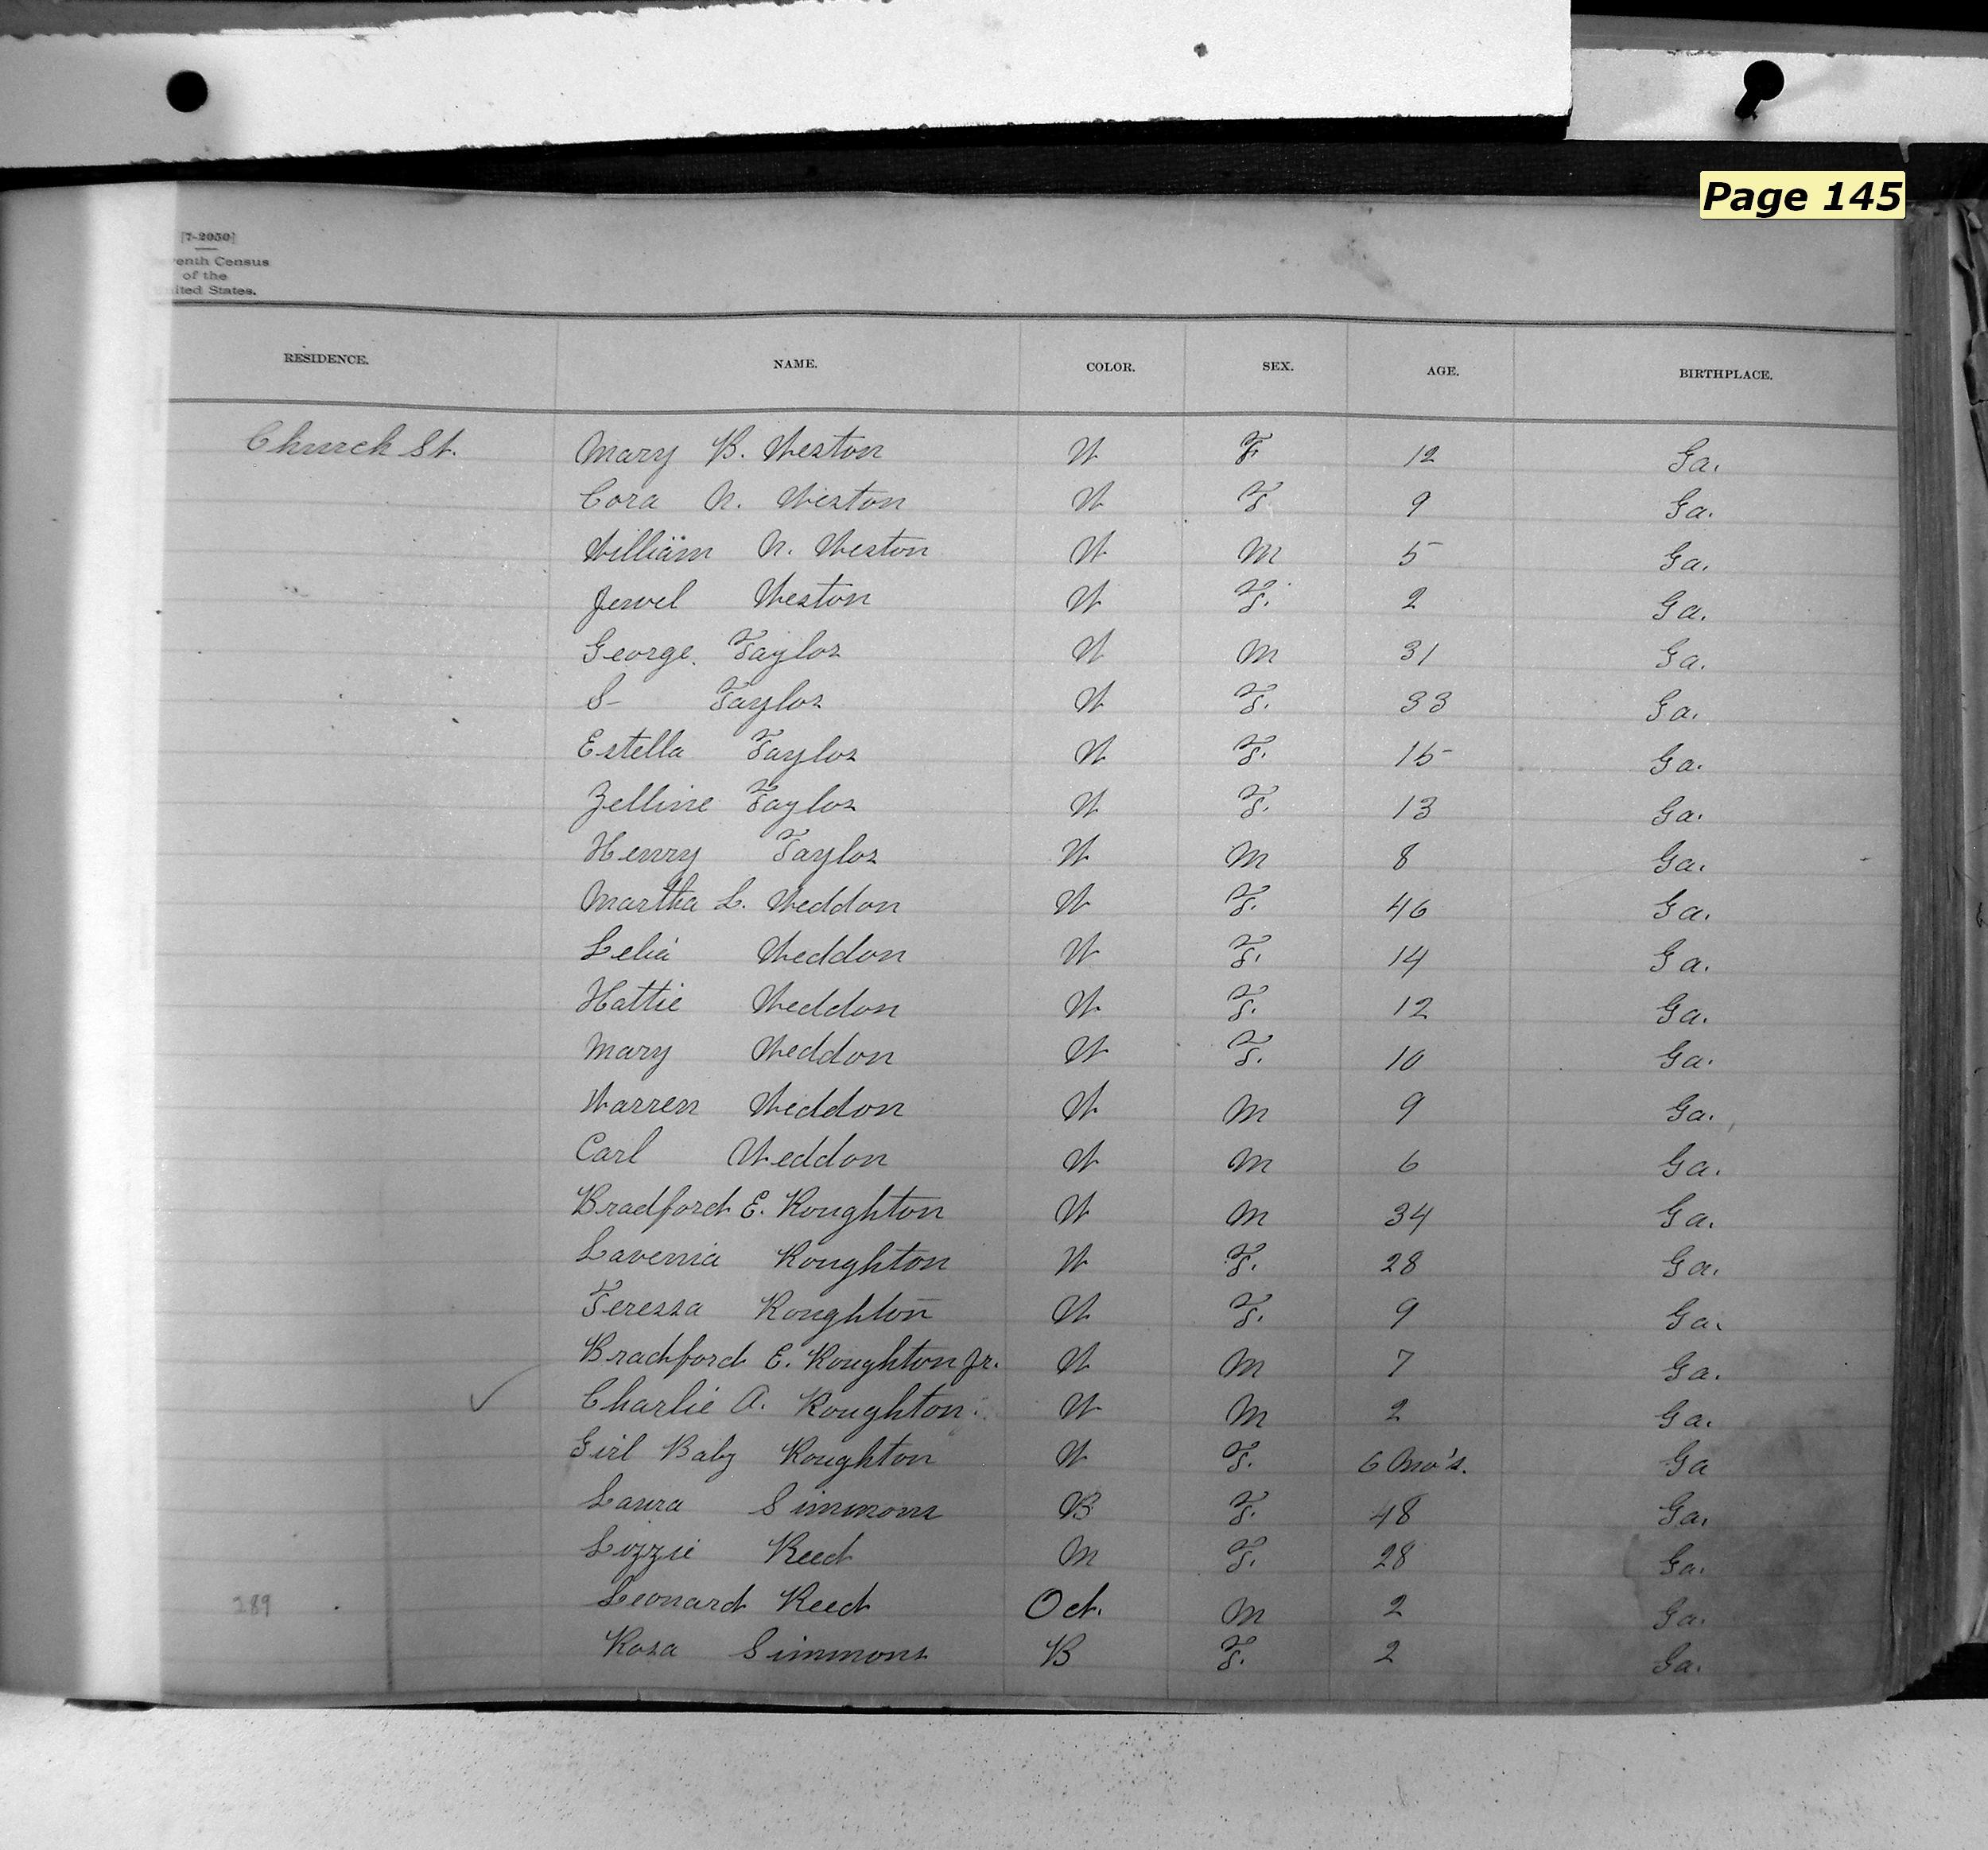 Page 145
[7-2050]
venth Census
of the
ited States.
RESIDENCE. NAME. COLOR. SEX. AGE. BIRTHPLACE.
Church St. Mary B. Weston W F. 12 Ga.
Cora N. Weston W F 9 Ga.
William N. Weston W M 5 Ga.
Jewel Weston W F. 2 Ga.
George. Taylor W M 31 Ga.
S- Taylor W F. 33 Ga.
Estella Taylor W F. 15 Ga.
Zelline Taylor W F. 13 Ga.
Henry Taylor W M 8 Ga.
Martha L. Weddon W F. 46 Ga.
Lelia Weddon W F. 14 Ga.
Hattie Weddon W F. 12 Ga.
Mary Weddon W F. 10 Ga.
Warren Weddon W M 9 Ga.
Carl Weddon W M 6 Ga.
Bradford E. Roughton W M 34 Ga.
Lavenia Roughton W F. 28 Ga.
Teressa Roughton W F. 9 Ga.
Bradford E. Roughton Jr. W M 7 Ga.
Charlie A. Roughton. W M 2 Ga.
Girl Baby Roughton W F. 6 Mo's. Ga
Laura Simmons B F. 48 Ga.
Lizzie Reed M F. 28 Ga.
289 Leonard Reed Oct. M 2 Ga.
Rosa Simmons B F. 2 Ga.